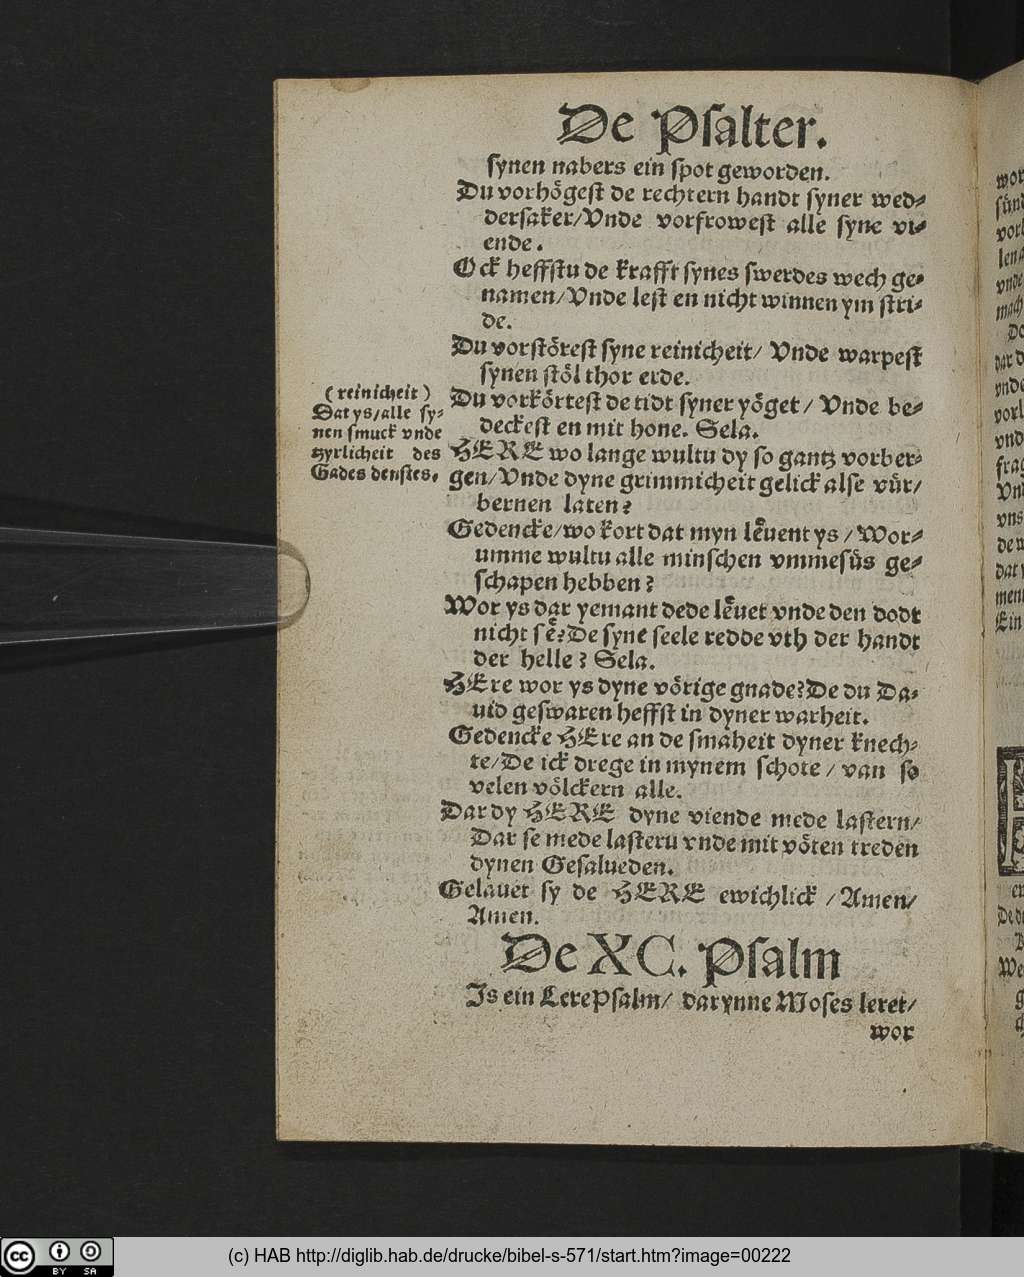 De Psalter.
synen nabers ein spot geworden.
Du vorhoͤgest de rechtern handt syner wed⸗
dersaker/Vnde vorfrowest alle syne vi⸗
ende.
Ock heffstu de krafft synes swerdes wech ge⸗
namen/Vnde lest en nicht winnen ym stri⸗
de.
Du vorstoͤrest syne reinicheit/ Vnde warpest
synen stoͤl thor erde.
(reinicheit)
Dat ys/alle sy⸗
nen smuck vnde
tzyrlicheit des
Gades denstes.
Du vorkoͤrtest de tidt syner yoͤget/ Vnde be⸗
deckest en mit hone. Sela.
HERE wo lange wultu dy so gantz vorber⸗
gen/Vnde dyne grimmicheit gelick alse vuͤr/
bernen laten?
Gedencke/wo kort dat myn leͤuent ys/Wor⸗
umme wultu alle minschen vmmesuͤs ge⸗
schapen hebben?
Wor ys dar yemant dede leͤuet vnde den dodt
nicht seͤ?De syne seele redde vth der handt
der helle? Sela.
HEre wor ys dyne voͤrige gnade?De du Da⸗
uid geswaren heffst in dyner warheit.
Gedencke HEre an de smaheit dyner knech⸗
te/De ick drege in mynem schote/ van so
velen voͤlckern alle.
Dar dy HERE dyne viende mede lastern/
Dar se mede lasteru vnde mit voͤten treden
dynen Gesalueden.
Gelauet sy de HERE ewichlick /Amen/
Amen.
De XC. Psalm
Is ein LerePsalm/ darynne Moses leret/
wor
(c) HAB http://diglib.hab.de/drucke/bibel-s-571/start.htm?image=00222
cc
BY SA